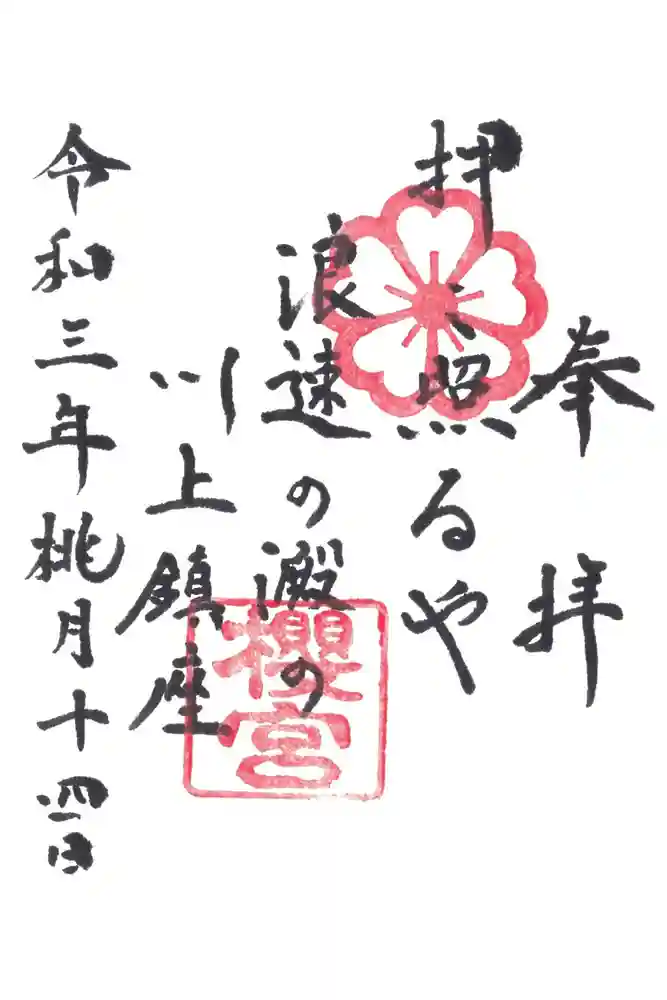 奉拝
押照るや
浪速の澱の
川上鎮座
令和三年桃月十四日
櫻宮